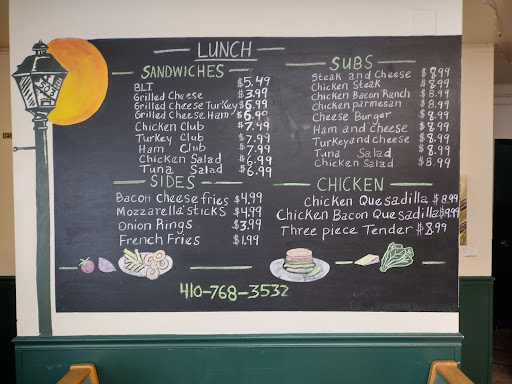 LUNCH
SANDWICHES
BLT $5.49
Grilled Cheese $3.99
Grilled Cheese Turkey $6.99
Grilled Cheese Ham $6.99
Chicken Club $7.99
Turkey Club $7.99
Ham Club $7.99
Chicken Salad $6.99
Tuna Salad $6.99
SIDES
Bacon Cheese fries $4.99
Mozzarella sticks $4.99
Onion Rings $3.99
French Fries $1.99
SUBS
Steak and Cheese $8.99
Chicken Steak $8.99
Chicken Bacon Ranch $8.99
Chicken parmesan $8.99
Cheese Burger $8.99
Ham and cheese $8.99
Turkey and cheese $8.99
Tuna Salad $8.99
Chicken Salad $8.99
CHICKEN
Chicken Quesadilla $8.99
Chicken Bacon Quesadilla $9.99
Three piece Tender $8.99
410-768-3532